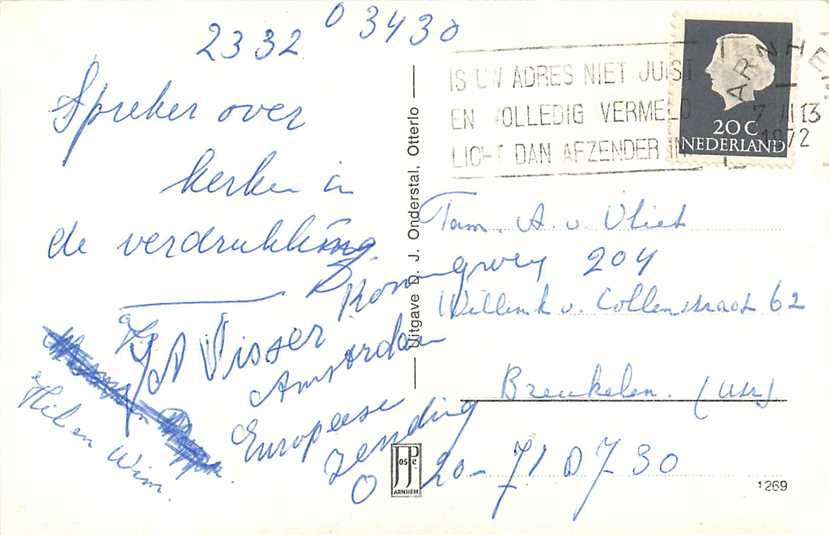 2332 03430
Spreker over
kerken in
de verdrukking
Visser Koningsweg 204
Amsterdam
Europeese
zending
020-71 0730
Hil en Wim.
Uitgave D. J. Onderstal, Otterlo
IS UW ADRES NIET JUIST
EN VOLLEDIG VERMELD
LICHT DAN AFZENDER IN
ARNHEM
7 VII 13
1972
20 C
NEDERLAND
Fam. A. v. Vliet
Willink v. Collenstraat 62
Breukelen. (Utr)
JOSPE
ARNHEM
1269